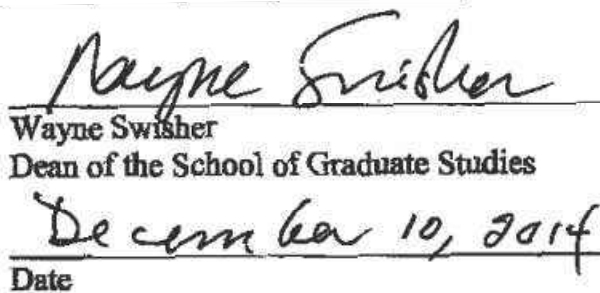 Wayne Swisher
Wayne Swisher
Dean of the School of Graduate Studies
December 10, 2014
Date